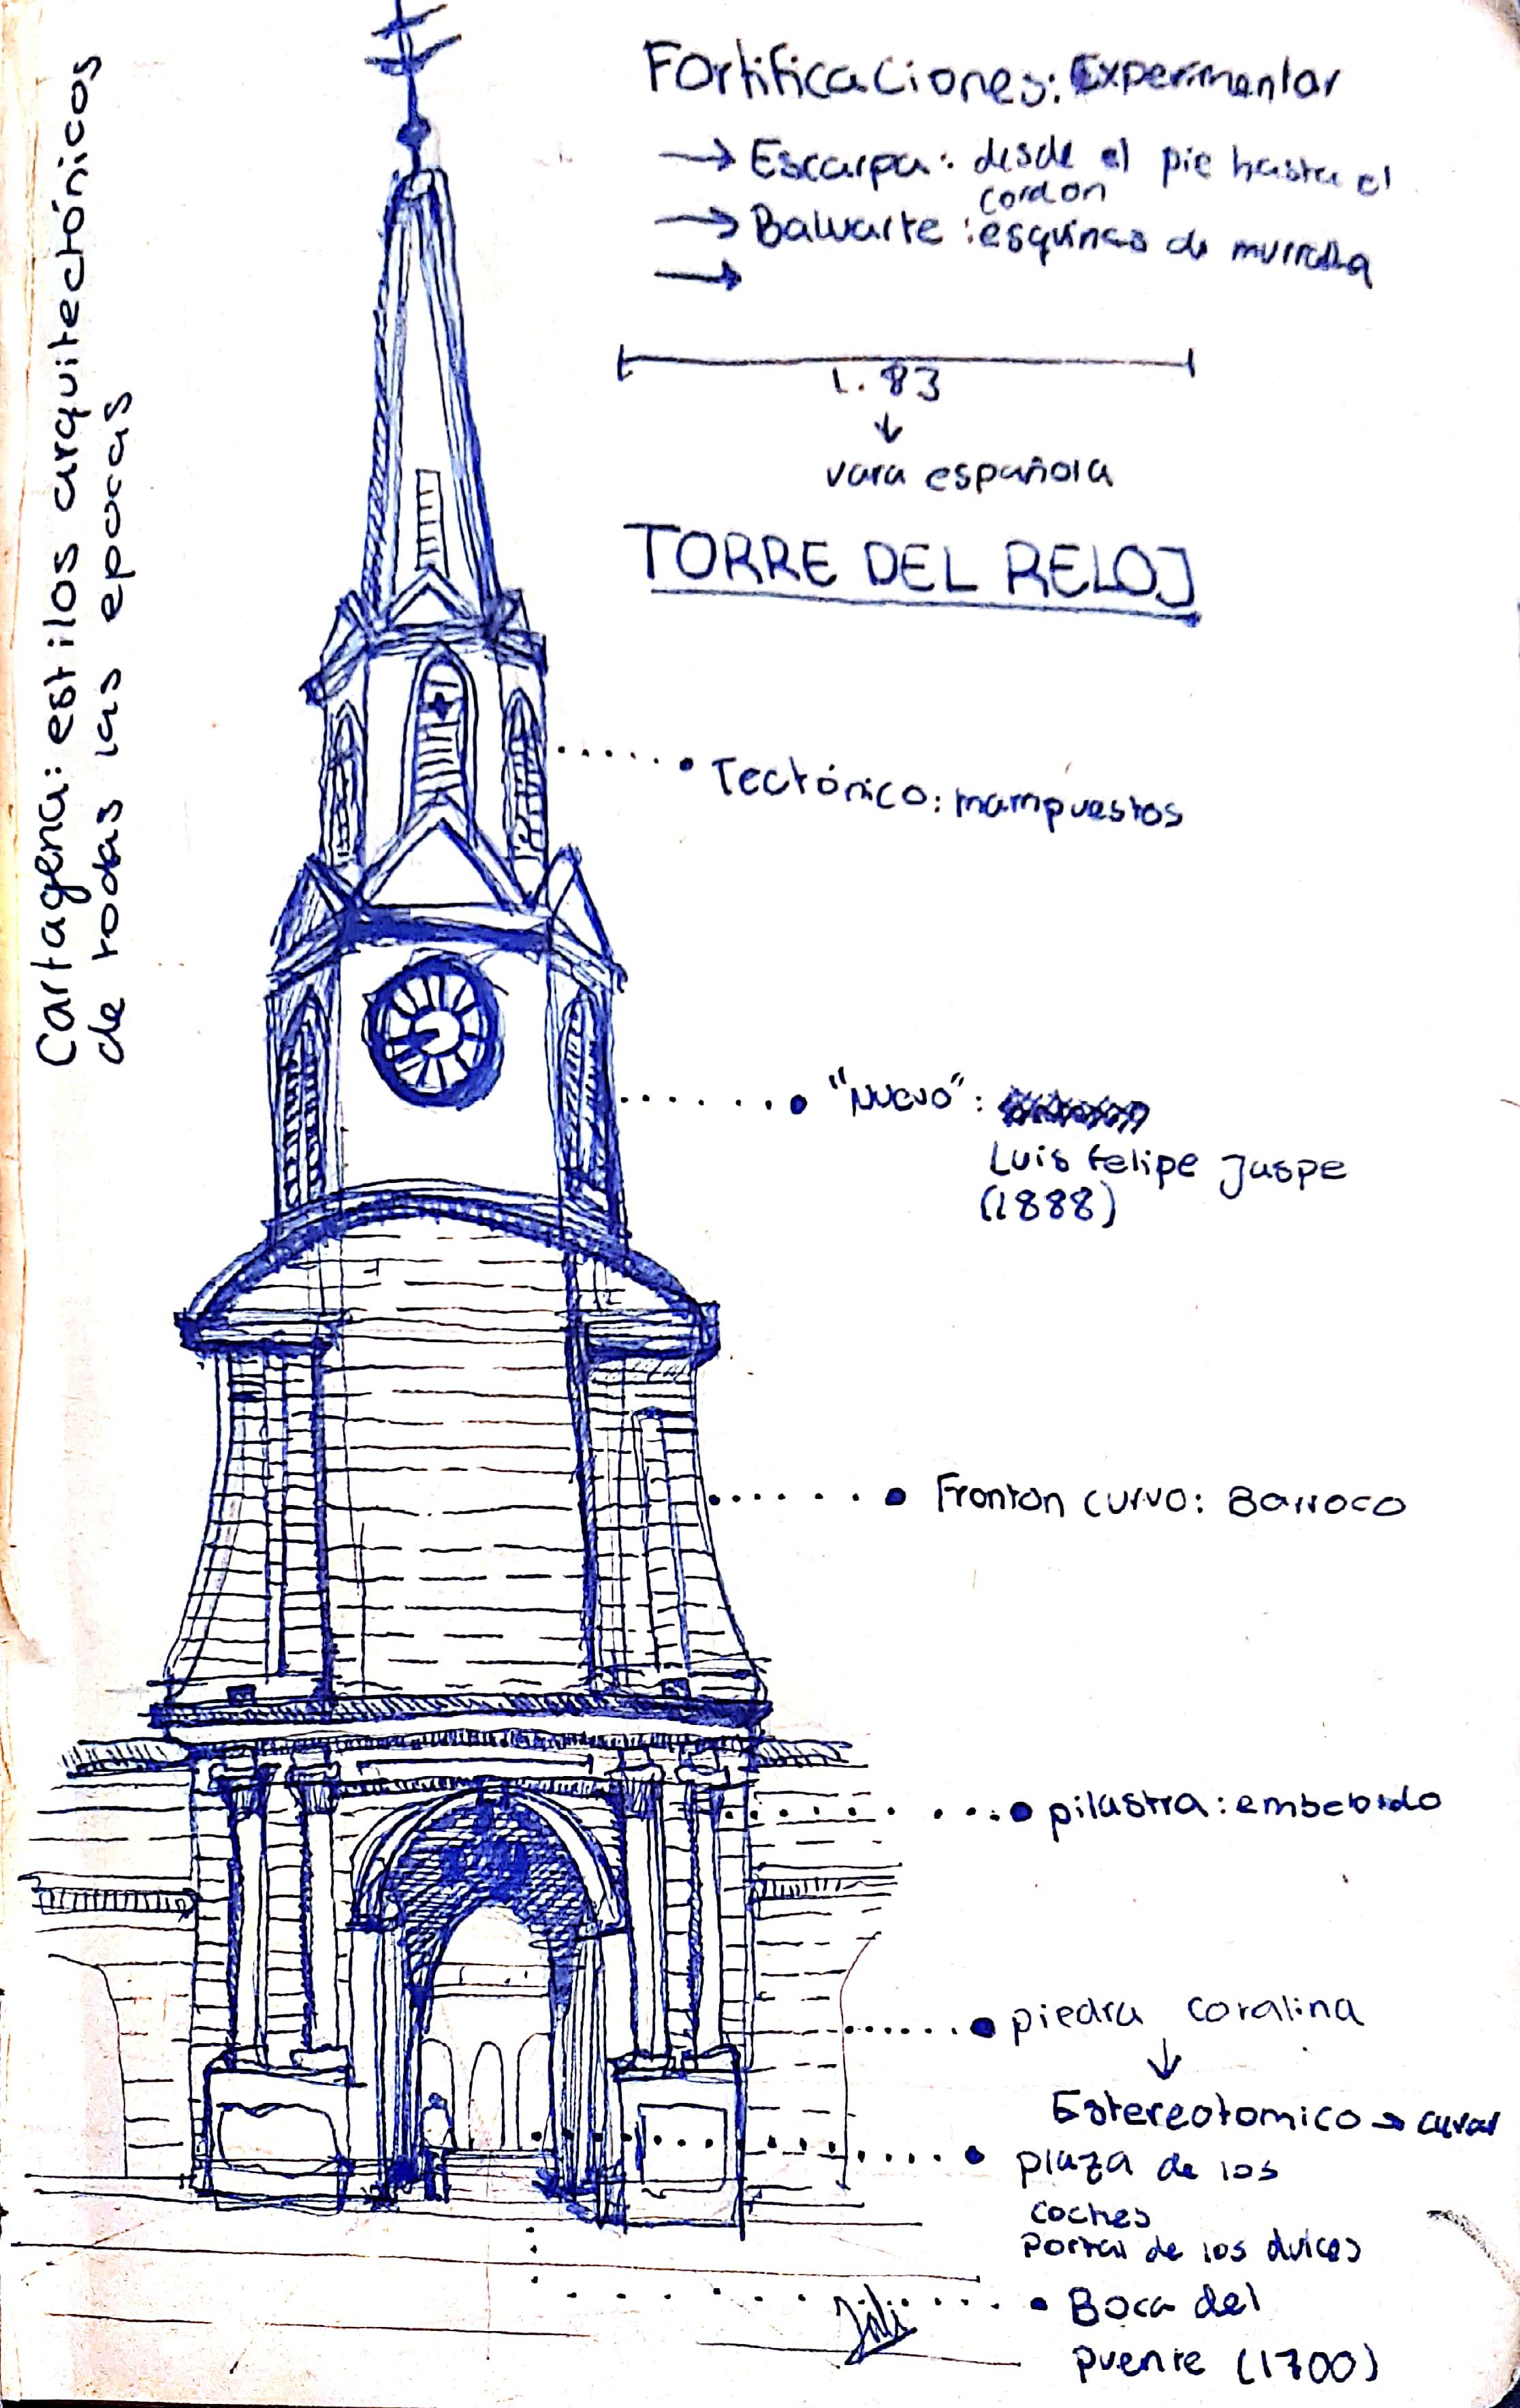 Cartagena: estilos arquitectónicos
de todas las epocas
Fortificaciones: Experimentar
→ Escarpa: desde el pie hasta el
cordon
→ Baluarte: esquinas de murralla
→
1.83
↓
vara española
TORRE DEL RELOJ
Tectónico: mampuestos
"Nuevo":
Luis Felipe Jaspe
(1888)
Fronton curvo: Barroco
pilastra: embebido
piedra coralina
↓
Estereotomico → curar
plaza de los
coches
Portal de los dulces
Boca del
puente (1700)